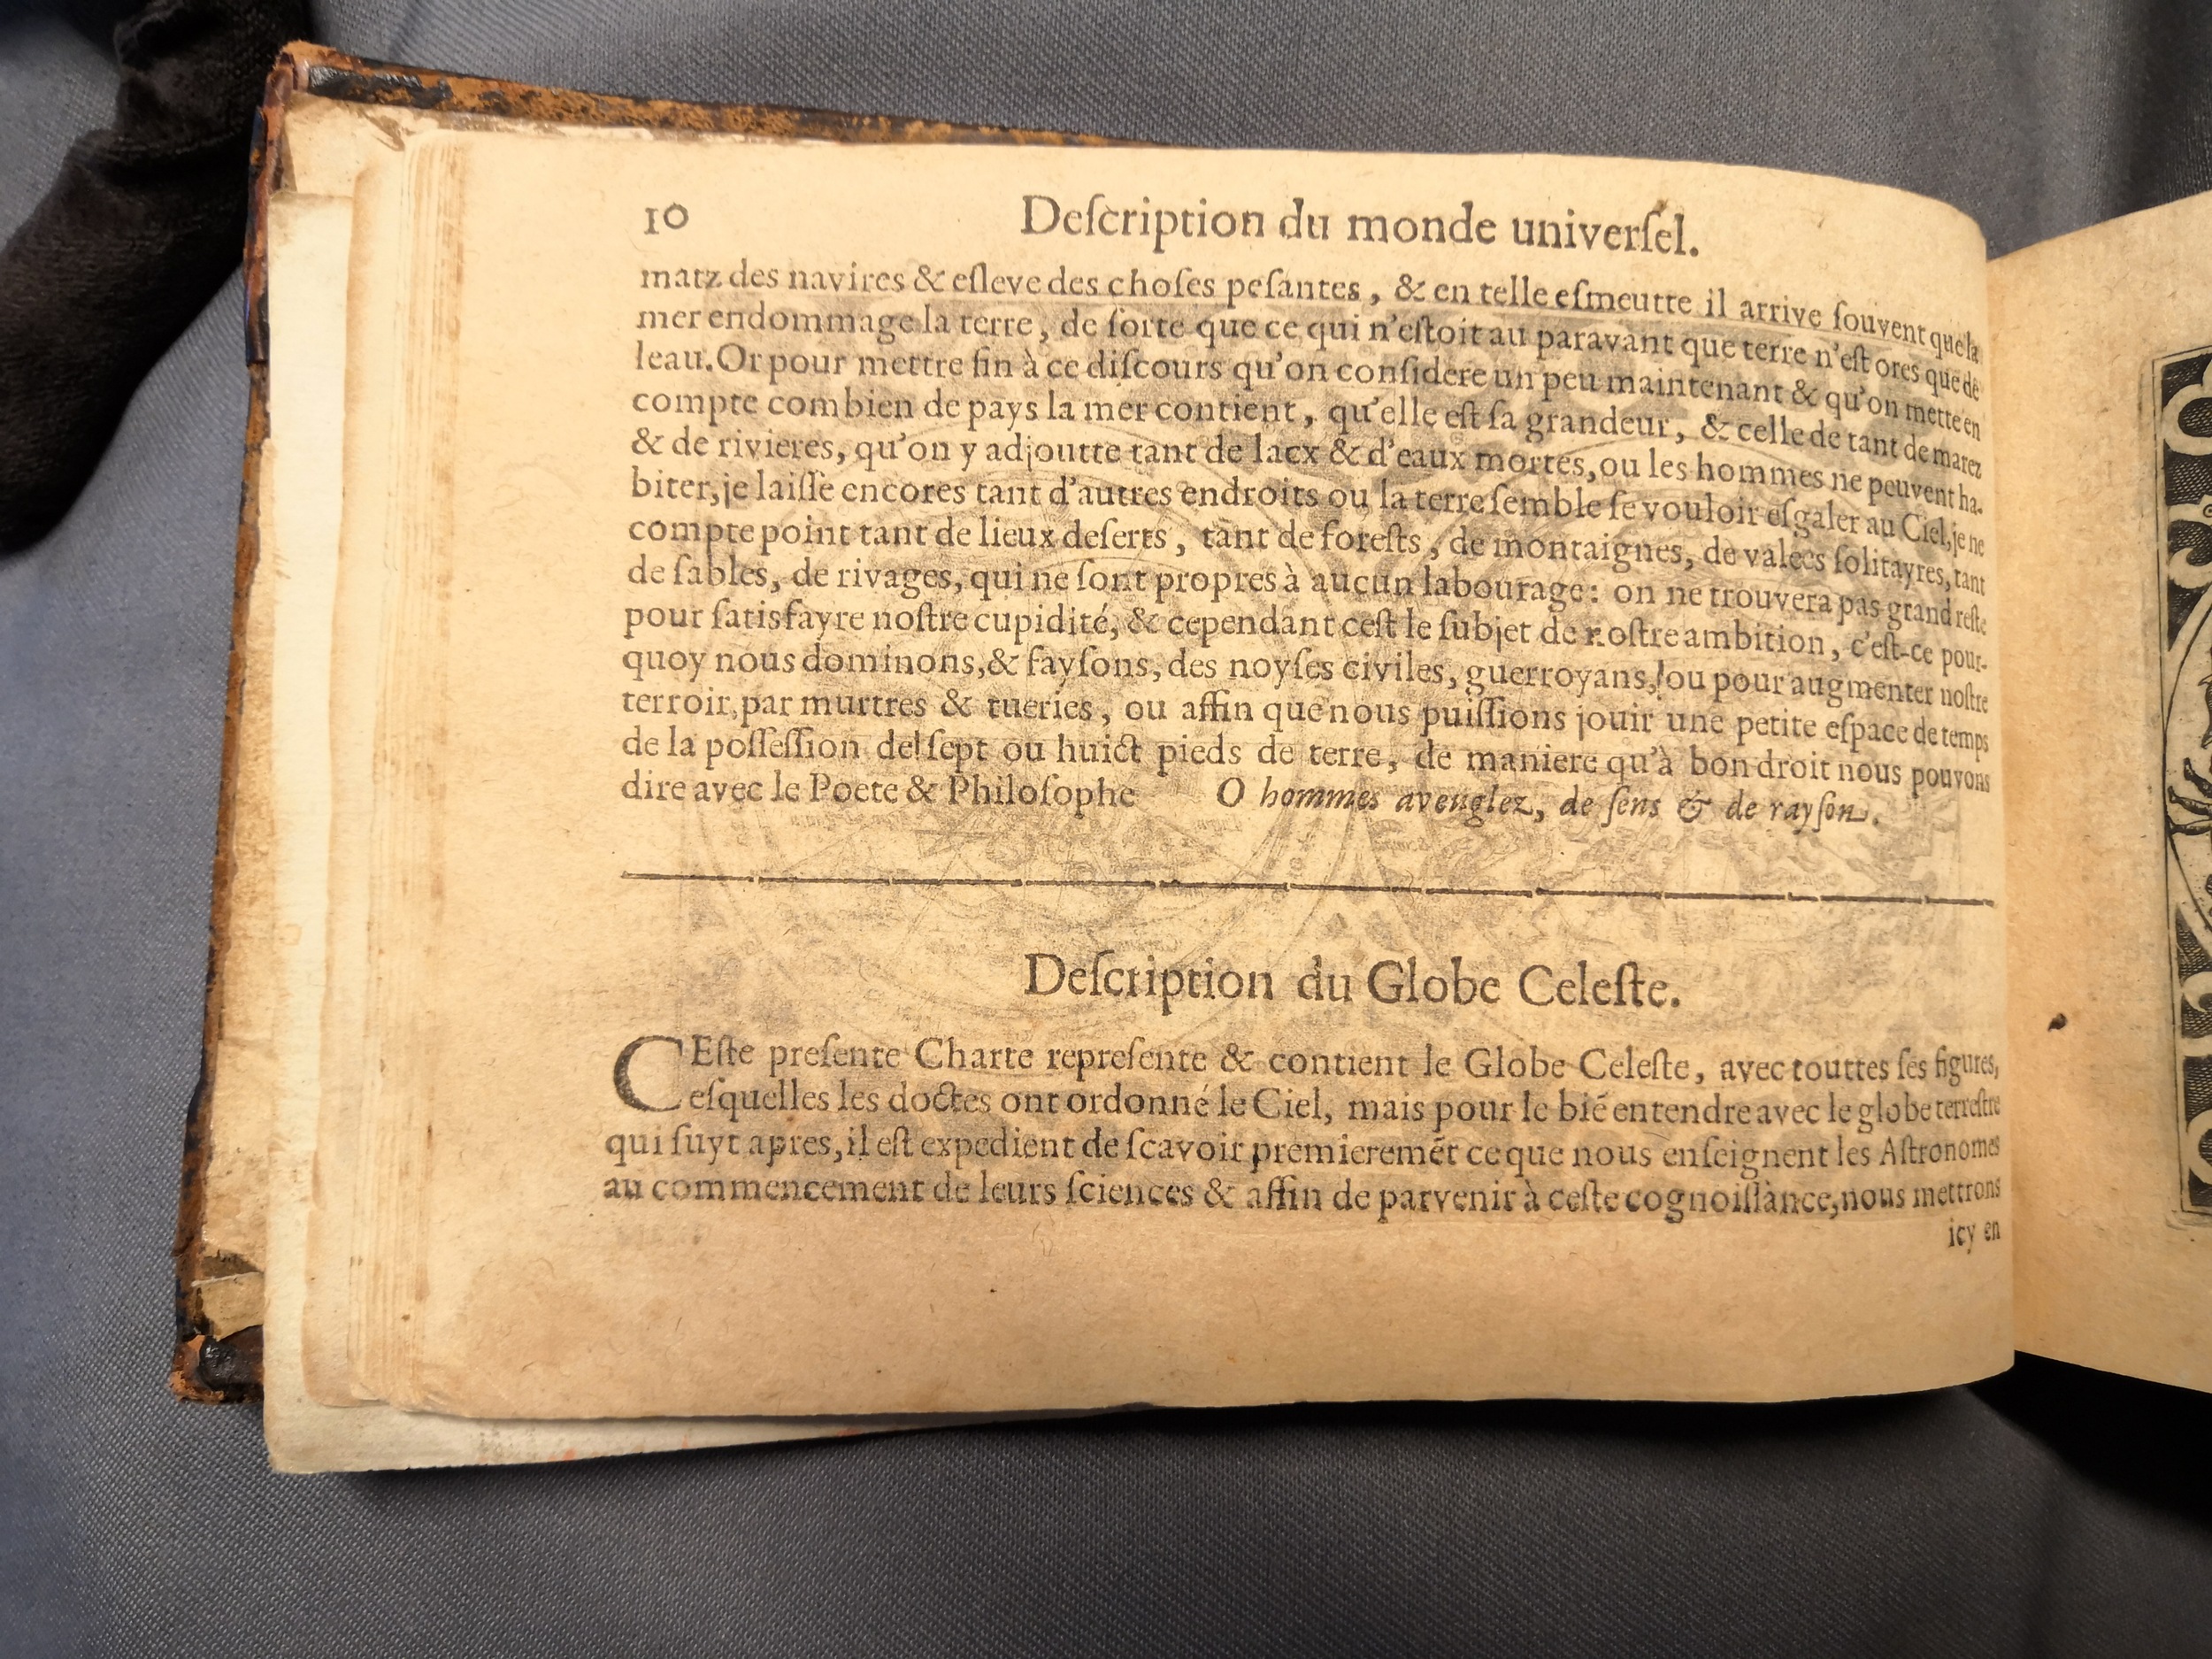 10 Deſcription du monde univerſel.
matz des navires & eſleve des choſes peſantes, & en telle eſmeutte il arrive ſouvent que la
mer endommage la terre, de ſorte que ce qui n'eſtoit au paravant que terre n'eſt ores que de
leau. Or pour mettre fin à ce diſcours qu'on conſidere un peu maintenant & qu'on mette en
compte combien de pays la mer contient, qu'elle eſt ſa grandeur, & celle de tant de marez
& de rivieres, qu'on y adjoutte tant de lacx & d'eaux mortes, ou les hommes ne peuvent ha-
biter, je laiſſe encores tant d'autres endroits ou la terre ſemble ſe vouloir eſgaler au Ciel, je ne
compte point tant de lieux deſerts, tant de foreſts, de montaignes, de valees ſolitayres, tant
de ſables, de rivages, qui ne ſont propres à aucun labourage: on ne trouvera pas grand reſte
pour ſatisfayre noſtre cupidité, & cependant ceſt le ſubjet de noſtre ambition, c'eſt-ce pour-
quoy nous dominons, & fayſons, des noyſes civiles, guerroyans, ou pour augmenter noſtre
terroir, par murtres & tueries, ou affin que nous puiſſions jouir une petite eſpace de temps
de la poſſeſſion de ſept ou huict pieds de terre, de maniere qu'à bon droit nous pouvons
dire avec le Poete & Philoſophe O hommes aveuglez, de ſens & de rayſon.
Deſcription du Globe Celeſte.
CEſte preſente Charte repreſente & contient le Globe Celeſte, avec touttes ſes figures,
eſquelles les doctes ont ordonné le Ciel, mais pour le bié entendre avec le globe terreſtre
qui ſuyt apres, il eſt expedient de ſcavoir premieremēt ce que nous enſeignent les Aſtronomes
au commencement de leurs ſciences & affin de parvenir à ceſte cognoiſſànce, nous mettrons
icy en